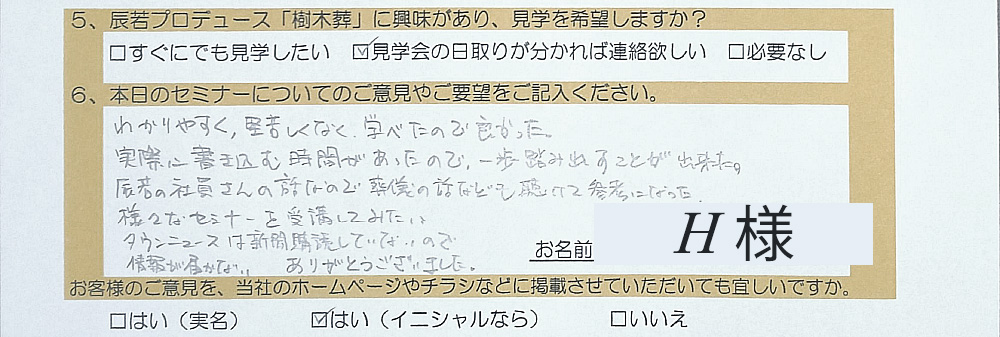 5、辰若プロデュース「樹木葬」に興味があり、見学を希望しますか？
□すぐにでも見学したい ☑見学会の日取りが分かれば連絡欲しい □必要なし
6、本日のセミナーについてのご意見やご要望をご記入ください。
わかりやすく,堅苦しくなく、学べたので良かった。
実際に書き込む時間があったので、一歩踏み出すことが出来た。
辰若の社員さんの話なので葬儀の話なども聴けて参考になった
様々なセミナーを受講してみたい
タウンニュースは新聞購読していないので
情報が届かない ありがとうございました。
お名前 H 様
お客様のご意見を、当社のホームページやチラシなどに掲載させていただいても宜しいですか。
□はい（実名） ☑はい（イニシャルなら） □いいえ